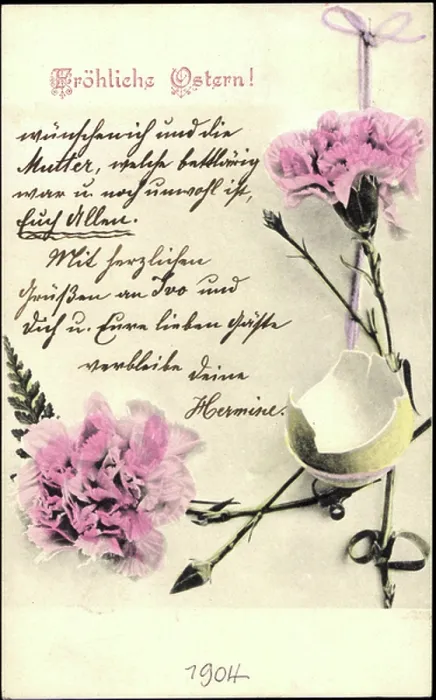 Fröhliche Ostern!
wünschen ich und die
Mutter, welche bettlärig
war u. noch unwohl ist,
Euch Allen.
Mit herzlichen
Grüßen an Ivo und
Dich u. Eure lieben Gäste
verbleibe Deine
Hermine.
1904